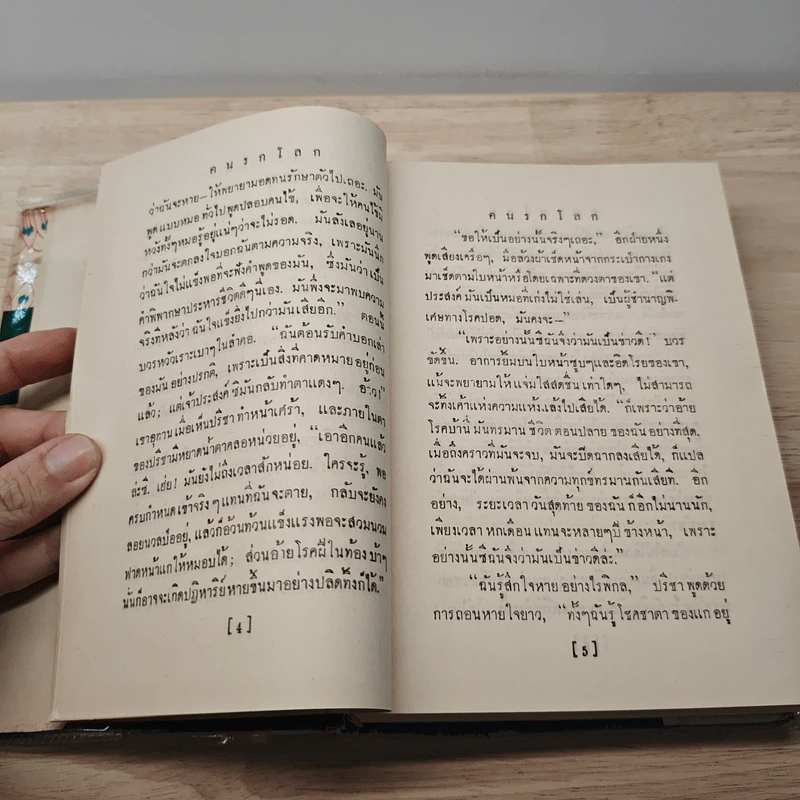 คนรกโลก
ว่าฉันจะหาย—ให้พยายามอดทนรักษาตัวไปเถอะ. มัน
พูดแบบหมอทั่วไปพูดปลอบคนไข้, เพื่อจะให้คนไข้มี
หวังทั้งๆหมอรู้อยู่แน่ๆว่าจะไม่รอด. มันลังเลอยู่นาน
กว่ามันจะตกลงใจบอกฉันตามความจริง, เพราะมันนึก
ว่าฉันใจไม่แข็งพอที่จะฟังคำพูดของมัน, ซึ่งมันว่าเป็น
คำพิพากษาประหารชีวิตดีๆนี่เอง. มันพึ่งจะมาพบความ
จริงทีหลังว่าฉันใจแข็งยิ่งไปกว่ามันเสียอีก.” ตอนนี้
บวรหัวเราะเบาๆในลำคอ. “ฉันต้อนรับคำบอกเล่า
ของมันอย่างปรกติ, เพราะเป็นสิ่งที่คาดหมายอยู่ก่อน
แล้ว; แต่เจ้าประสงค์ซิมันกลับทำตาแดงๆ. อ้าว!”
เขาอุทานเมื่อเห็นปรีชาทำหน้าเศร้า, และภายในตา
ของปรีชามีหยาดน้ำตาคลอหน่วยอยู่, “เอาอีกคนแล้ว
ล่ะซี. เฮ่ย! มันยังไม่ถึงเวลาสักหน่อย. ใครจะรู้, พอ
ครบกำหนดเข้าจริงๆแทนที่ฉันจะตาย, กลับจะยังคง
ลอยนวลป๋ออยู่, แล้วก็อ้วนท้วนแข็งแรงพอจะสวมนวม
ฟาดหน้าแกให้หมอบได้; ส่วนอ้ายโรคผีในท้องบ้าๆ
นั่นก็อาจจะเกิดปฏิหาริย์หายขึ้นมาอย่างปลิดทิ้งก็ได้.”
[4]
คนรกโลก
“ขอให้เป็นอย่างนั้นจริงๆเถอะ,” อีกฝ่ายหนึ่ง
พูดเสียงเครือๆ, มือล้วงผ้าเช็ดหน้าจากกระเป๋ากางเกง
มาเช็ดตามใบหน้าหรือโดยเฉพาะที่ดวงตาของเขา. “แต่
ประสงค์มันเป็นหมอที่เก่งไม่ใช่เล่น, เป็นผู้ชำนาญพิ-
เศษทางโรคปอด, มันคงจะ—”
“เพราะอย่างนั้นซีฉันจึงว่ามันเป็นข่าวดี!” บวร
ขัดขึ้น. อาการยิ้มบนใบหน้าซูบๆและอิดโรยของเขา,
แม้จะพยายามให้แจ่มใสสดชื่นเท่าใดๆ, ไม่สามารถ
จะทิ้งเค้าแห่งความแห้งแล้งไปเสียได้. “ก็เพราะว่าอ้าย
โรคบ้านี่มันทรมานชีวิตตอนปลายของฉันอย่างที่สุด.
เมื่อถึงคราวที่มันจะจบ, มันจะปิดฉากลงเสียได้, ก็แปล
ว่าฉันจะได้ผ่านพ้นจากความทุกข์ทรมานกันเสียที. อีก
อย่าง, ระยะเวลาวันสุดท้ายของฉันก็อีกไม่นานนัก,
เพียงเวลาหกเดือนแทนจะหลายๆปีข้างหน้า, เพราะ
อย่างนั้นซีฉันจึงว่ามันเป็นข่าวดีล่ะ.”
“ฉันรู้สึกใจหายอย่างไรพิกล,” ปรีชาพูดด้วย
การถอนหายใจยาว, “ทั้งๆฉันรู้โชคชาตาของแกอยู่
[5]